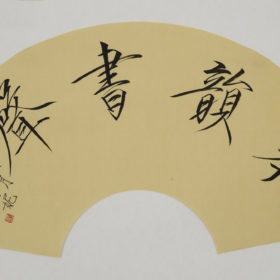 文韻書聲